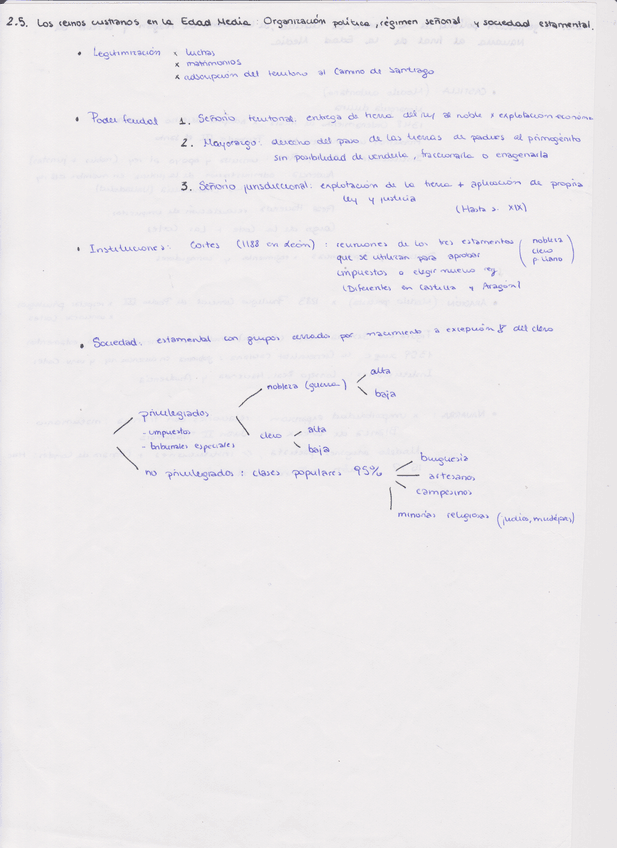 2.5. Los reinos cristianos en la Edad Media: Organización política, régimen señorial y sociedad estamental.
• Legitimización x luchas
x matrimonios
x adscripción del territorio al Camino de Santiago
• Poder feudal 1. Señorío territorial: entrega de tierra del rey al noble x explotación económ
2. Mayorazgo: derecho del paso de las tierras de padres al primogénito
sin posibilidad de venderla, fraccionarla o enagenarla
3. Señorío jurisdiccional: explotación de la tierra + aplicación de propia
ley y justicia
(Hasta s. XIX)
• Instituciones: Cortes (1188 en León): reuniones de los tres estamentos (nobleza
que se utilizan para aprobar clero
impuestos o elegir nuevo rey p. llano)
(Diferentes en Castilla y Aragón)
• Sociedad: estamental con grupos cerrados por nacimiento a excepción del clero
nobleza (guerra) alta
baja
privilegiados
- impuestos
- tribunales especiales
clero alta
baja
no privilegiados: clases populares 95% burguesía
artesanos
campesinos
minorías religiosas (judíos, mudéjares)